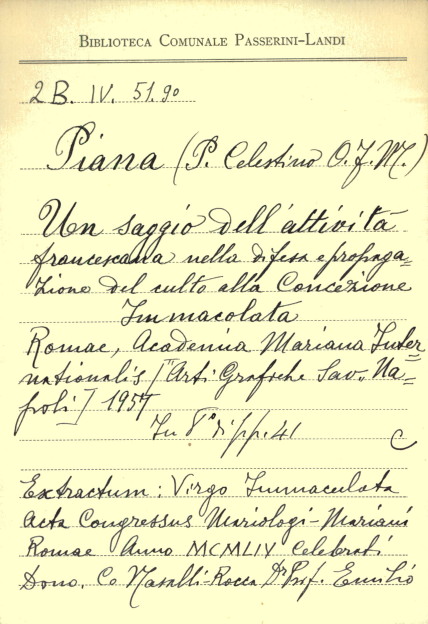 BIBLIOTECA COMUNALE PASSERINI-LANDI
2 B. IV. 51.90
Piana (P. Celestino O.F.M.)
Un saggio dell'attività
francescana nella difesa e propaga=
zione del culto alla Concezione
Immacolata
Romae, Academia Mariana Inter=
nationalis ["Arti Grafiche Sav„ Na=
poli] 1957
In 8° di pp. 41
C
Extractum: Virgo Immaculata
Acta Congressus Mariologi-Mariani
Romae Anno MCMLIV Celebrati
Dono. Co Nasalli-Rocca Dr Prof. Emilio